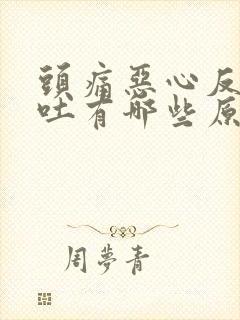 頭痛惡心反
吐有哪些原
周夢青